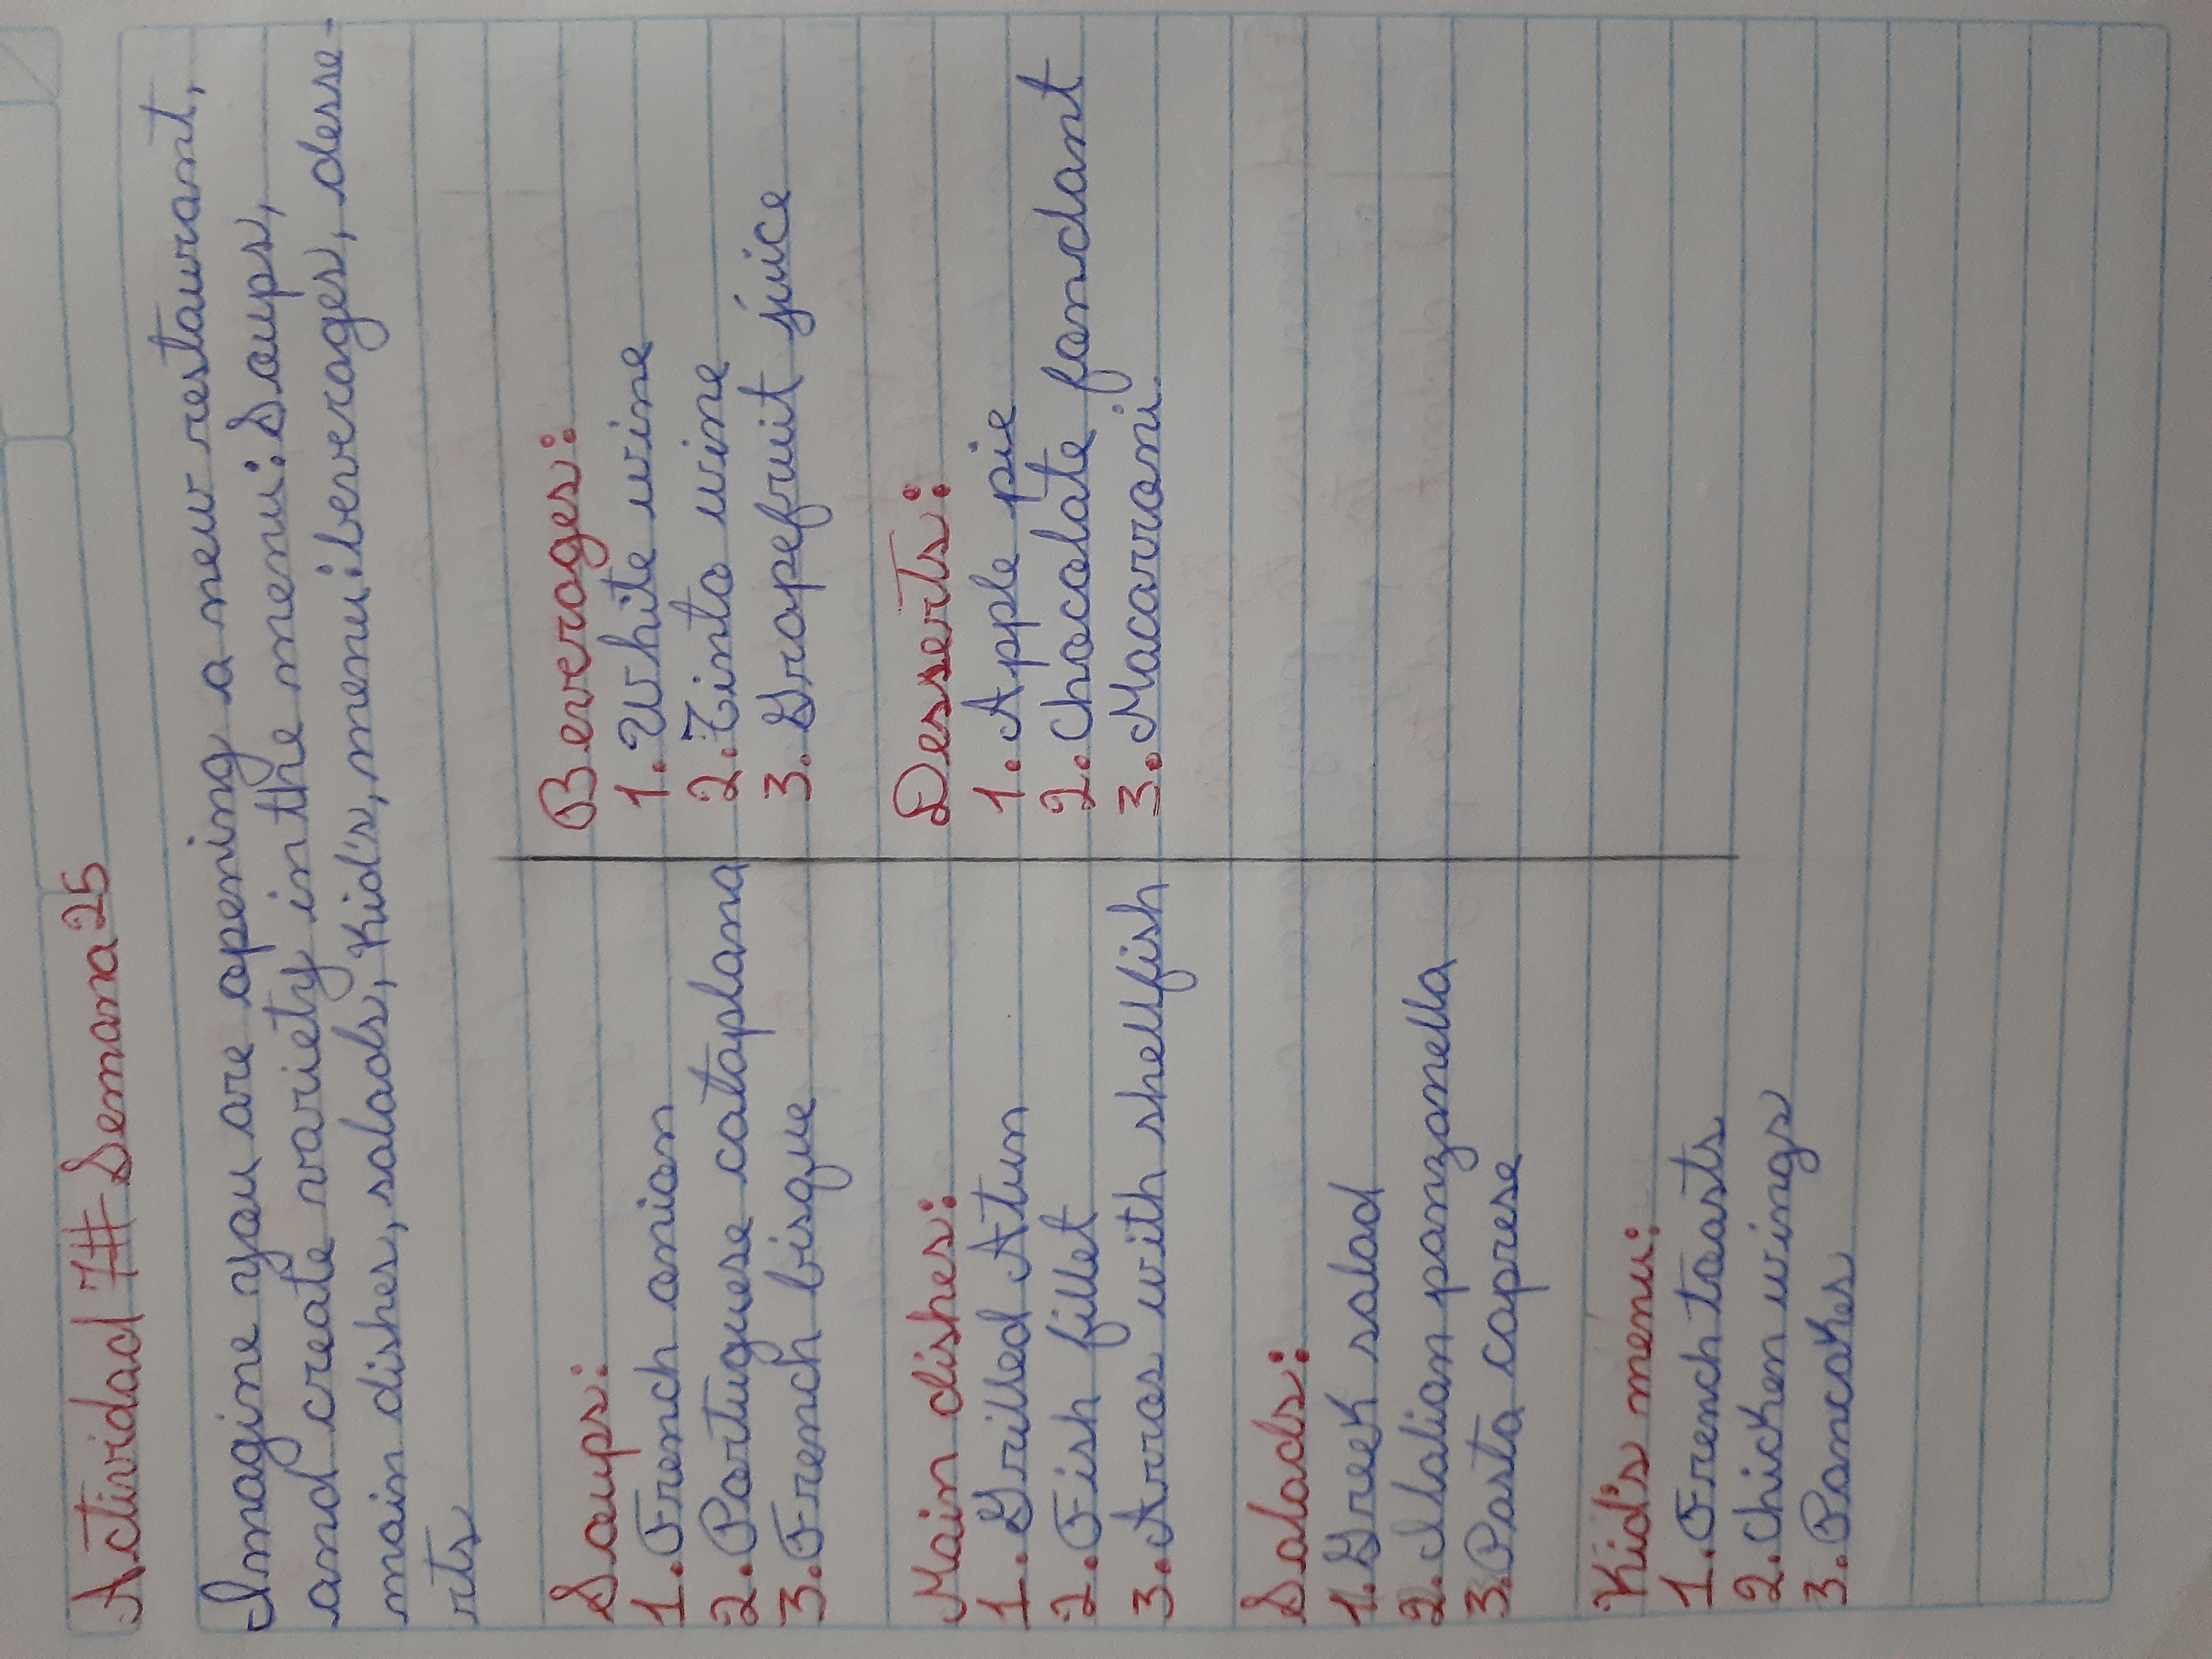 Actividad 7# Semana 25
Imagine you are opening a new restaurant,
and create variety in the menu: Soups,
main dishes, salads, Kid's, menu; beverages, desse-
rts
Soups:
1. French onion
2. Portuguese cataplana
3. French bisque
Main dishes:
1. Grilled Atun
2. Fish fillet
3. Arros with shellfish
Salads:
1. Greek salad
2. Italian panzanella
3. Pasta caprese
Kid's menu:
1. French toasts
2. Chicken wings
3. Pancakes
Beverages:
1. White wine
2. Tinto wine
3. Grapefruit juice
Desserts:
1. Apple pie
2. Chocolate fondant
3. Macaroni.